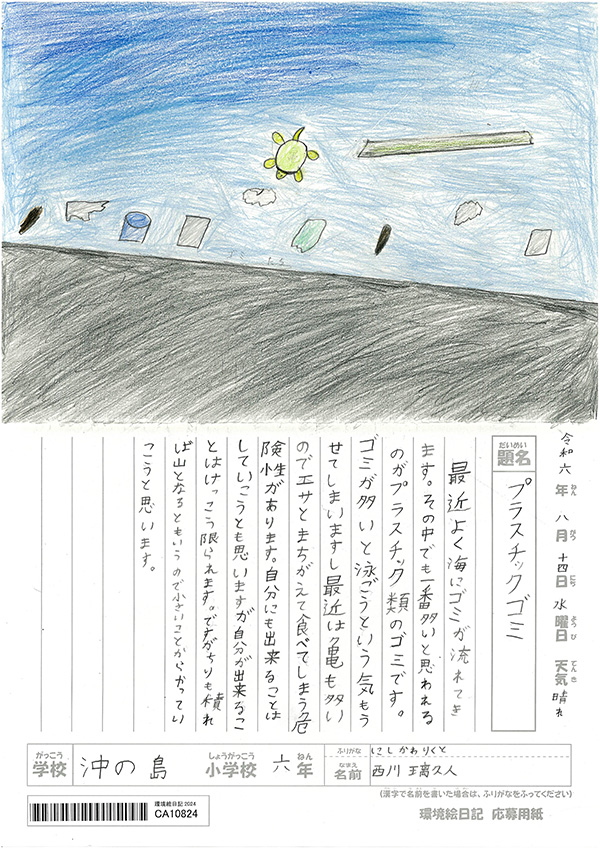 ゴミ たち
令和六年 八月 十四日 水曜日 天気 晴れ
ねん がつ にち ようび てんき
だいめい
題名
プラスチックゴミ
最近よく海にゴミが流れてき
ます。その中でも一番多いと思われる
のがプラスチック類のゴミです。
ゴミが多いと泳ごうという気もう
せてしまいますし最近は亀も多い
のでエサとまちがえて食べてしまう危
険性があります。自分にも出来ることは
していこうとも思いますが自分が出来るこ
とはけっこう限られます。ですがちりも積れ
ば山となるともいうので小さいことからかってい
こうと思います。
がっこう しょうがっこう ねん
学校 沖の島 小学校 六年
ふりがな にしかわりくと
なまえ
名前 西川 璃久人
(漢字で名前を書いた場合は、ふりがなをふってください)
環境絵日記2024
CA10824
環境絵日記 応募用紙